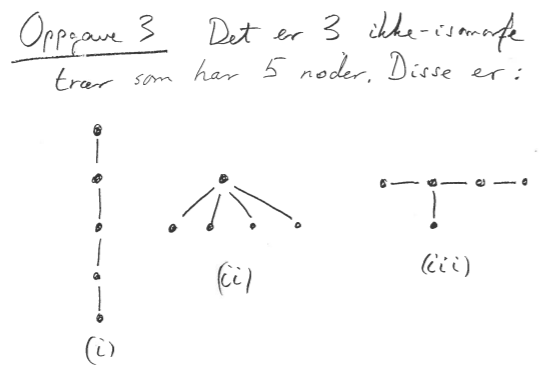 Oppgave 3 Det er 3 ikke-isomorfe
trær som har 5 noder. Disse er:
(i)
(ii)
(iii)